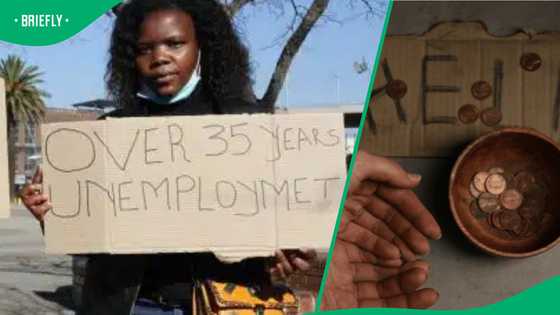 BRIEFLY
OVER 35 YEARS
UNEMPLOYMET